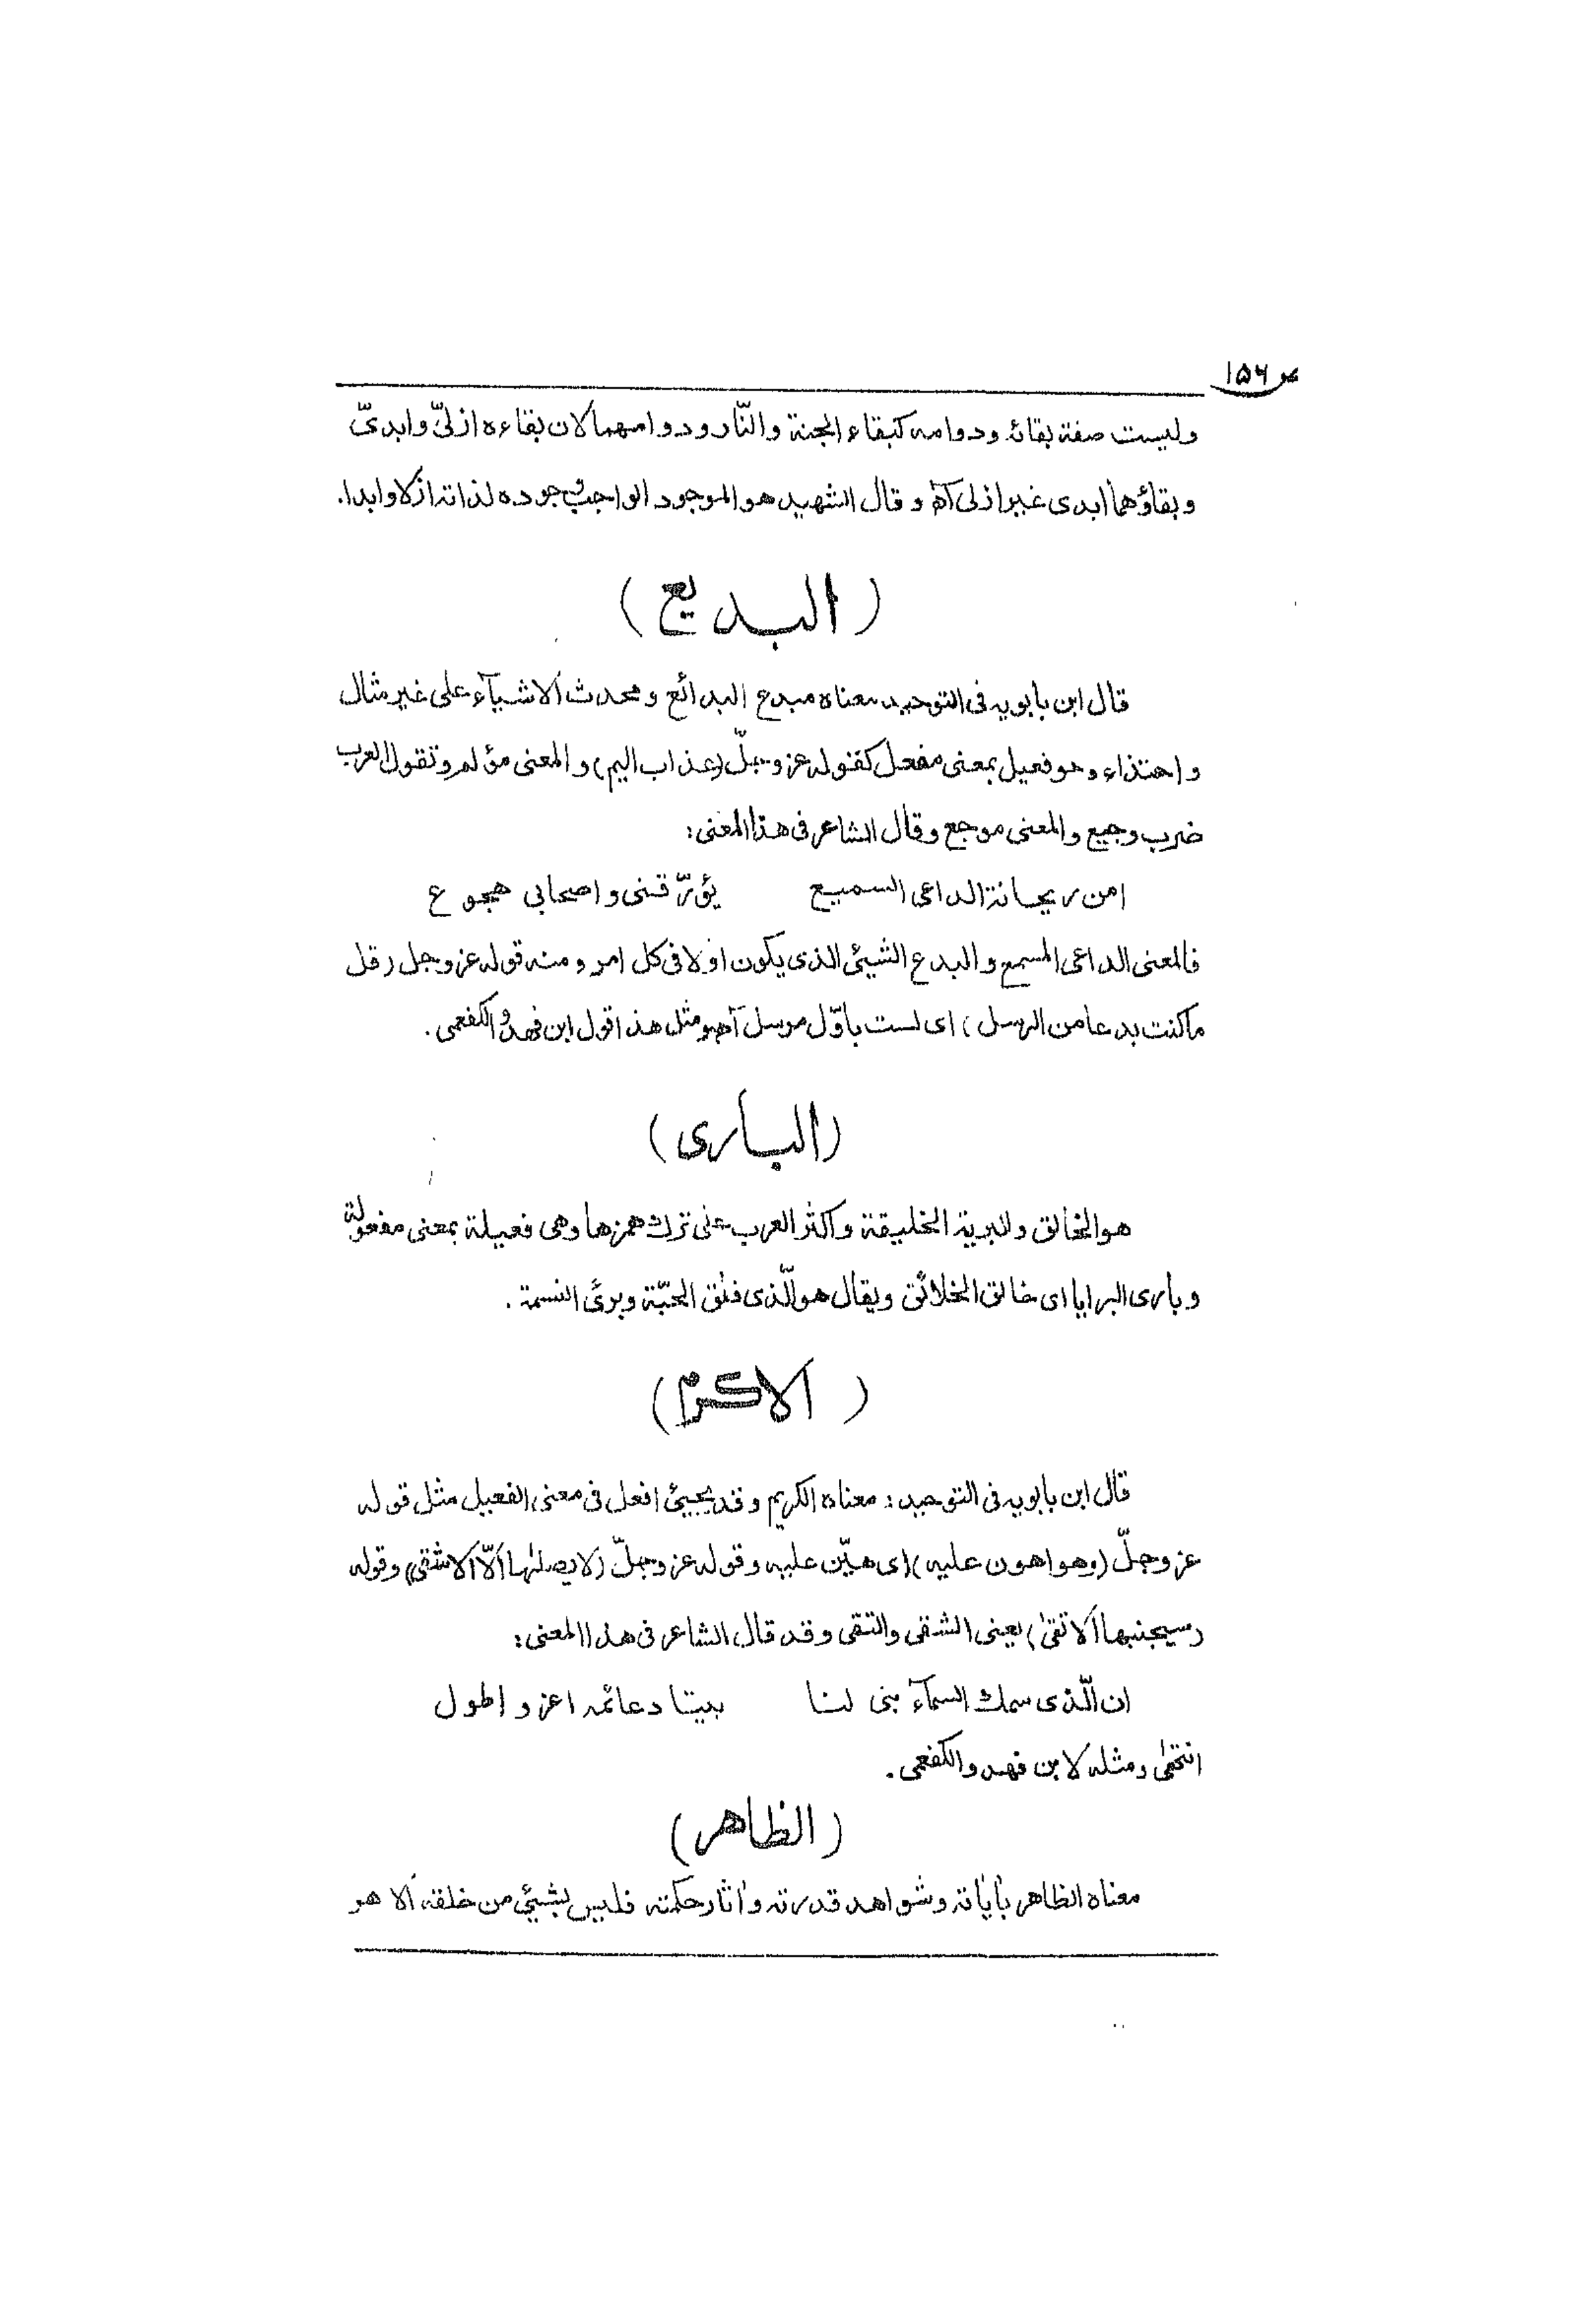 ص ١٥٦
وليست صفة بقائه ودوامه كبقاء الجنة والنّار ودوامهما لان بقاءه ازلىّ وابدىّ
وبقاؤهما ابدى غير ازلى آه وقال الشهيد هو الموجود الواجب وجوده لذاته ازلا وابدا.
( البديع )
قال ابن بابويه فى التوحيد معناه مبدع البدائع ومحدث الاشيآء على غير مثال
واحتذاء وهو فعيل بمعنى مفعل كقوله عز وجلّ (عذاب اليم) والمعنى مؤلم وتقول العرب
ضرب وجيع والمعنى موجع وقال الشاعر فى هذا المعنى:
امن ريحانة الداعى السميع يؤرّقنى واصحابى هجوع
فالمعنى الداعى المسمع والبدع الشيئ الذى يكون اولا فى كل امر ومنه قوله عز وجل (قل
ماكنت بدعا من الرسل) اى لست باوّل مرسل آه ومثل هذا قول ابن فهد والكفعمى.
(البارى)
هو الخالق والبرية الخليقة واكثر العرب على ترك همزها وهى فعيلة بمعنى مفعولة
وبارى البرايا اى خالق الخلائق ويقال هو الّذى فلق الحبّة وبرئ النسمة.
( الاكرم )
قال ابن بابويه فى التوحيد: معناه الكريم وقد يجيئ افعل فى معنى الفعيل مثل قوله
عز وجلّ (وهو اهون عليه) اى هيّن عليه وقوله عز وجلّ (لا يصلٰها الّا الاشقى) وقوله
(سيجنبها الاتقىٰ) يعنى الشقى والتقى وقد قال الشاعر فى هذا المعنى:
ان الّذى سمك السمآء بنى لنا بيتا دعائمه اعز واطول
انتهىٰ ومثله لابن فهد والكفعمى.
( الظاهر )
معناه الظاهر بأياته وشواهد قدرته وأثار حكمته فليس بشيئ من خلقه الا هو